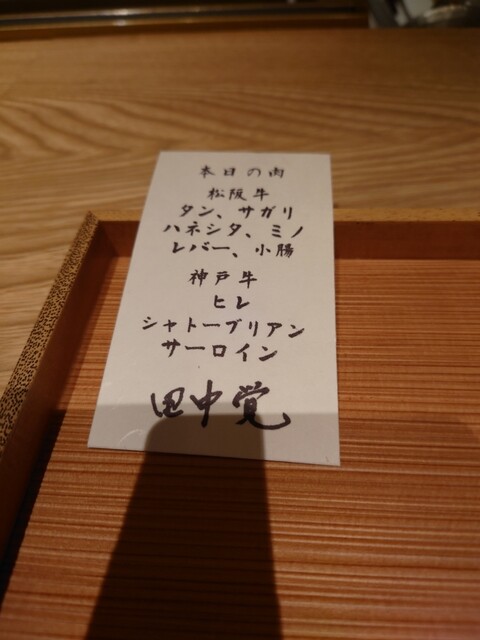 本日の肉
松阪牛
タン、サガリ
ハネシタ、ミノ
レバー、小腸
神戸牛
ヒレ
シャトーブリアン
サーロイン
田中覚